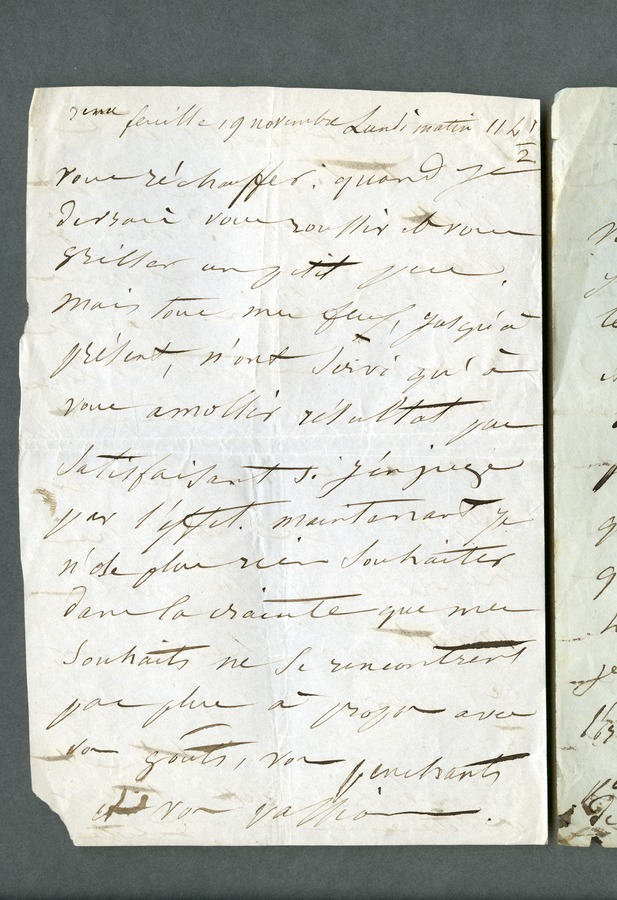 feuille, 19 novembre Lundi matin 11 h 1/2
vous réchauffer. quand je
devrais vous roussir et vous
griller un petit peu,
mais tous mes feux, jusqu'à
présent, n'ont servi qu'à
vous amollir résultat peu
satisfaisant si j'en juge
par l'effet. maintenant je
n'ose plus rien souhaiter
dans la crainte que mes
souhaits ne se rencontrent
pas plus à propos avec
vos goûts, vos penchants
et vos passions.